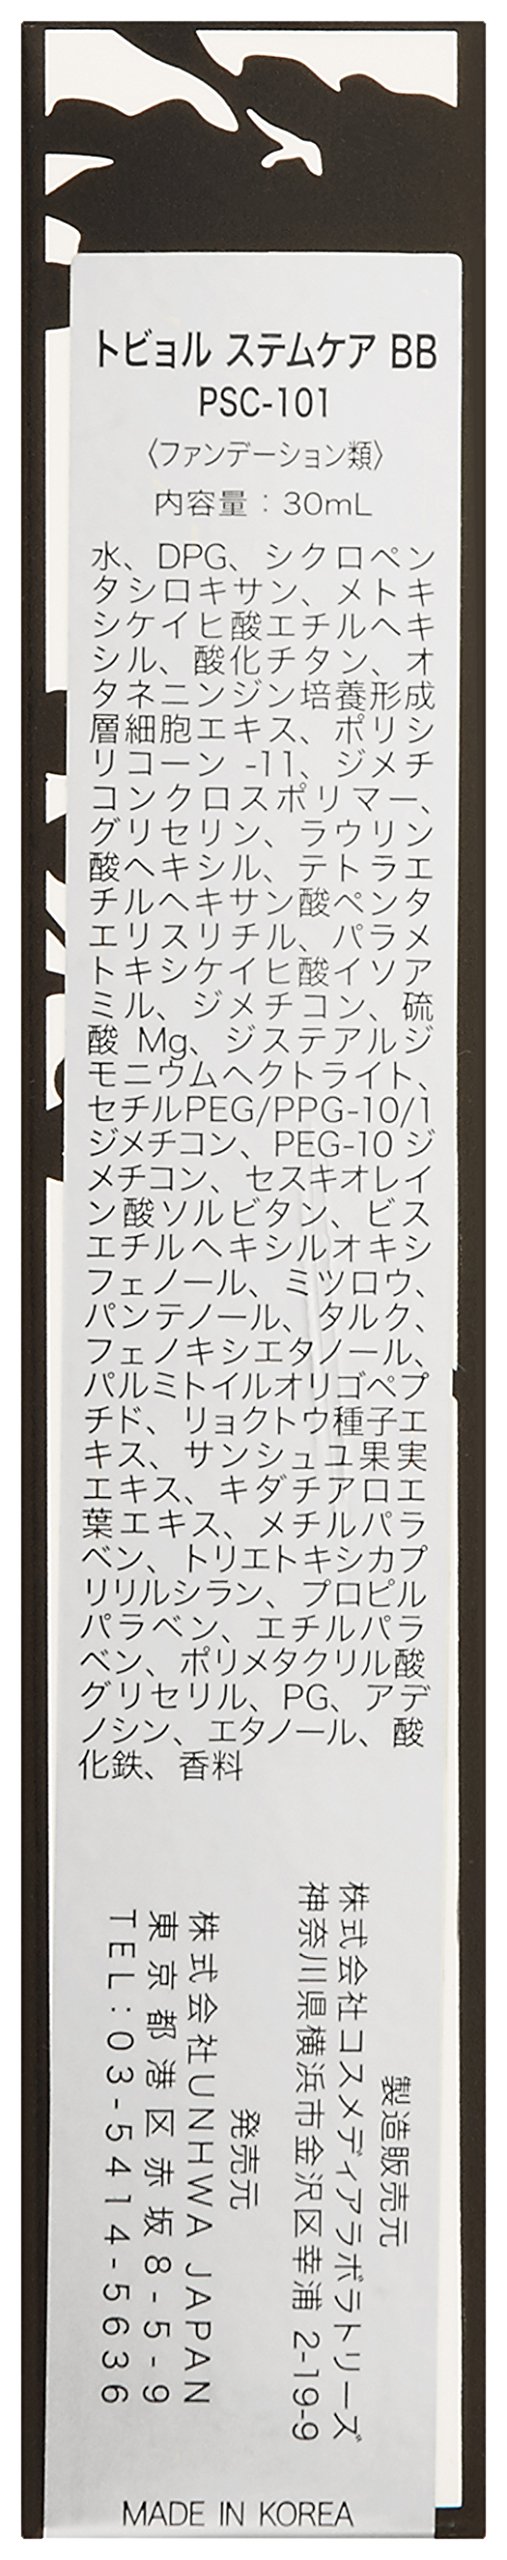 トビョル ステムケア BB
PSC-101
〈ファンデーション類〉
内容量：30mL
水、DPG、シクロペン
タシロキサン、メトキ
シケイヒ酸エチルヘキ
シル、酸化チタン、オ
タネニンジン培養形成
層細胞エキス、ポリシ
リコーン -11、ジメチ
コンクロスポリマー、
グリセリン、ラウリン
酸ヘキシル、テトラエ
チルヘキサン酸ペンタ
エリスリチル、パラメ
トキシケイヒ酸イソア
ミル、ジメチコン、硫
酸 Mg、ジステアルジ
モニウムヘクトライト、
セチルPEG/PPG-10/1
ジメチコン、PEG-10 ジ
メチコン、セスキオレイ
ン酸ソルビタン、ビス
エチルヘキシルオキシ
フェノール、ミツロウ、
パンテノール、タルク、
フェノキシエタノール、
パルミトイルオリゴペプ
チド、リョクトウ種子エ
キス、サンシュユ果実
エキス、キダチアロエ
葉エキス、メチルパラ
ベン、トリエトキシカプ
リリルシラン、プロピル
パラベン、エチルパラ
ベン、ポリメタクリル酸
グリセリル、PG、アデ
ノシン、エタノール、酸
化鉄、香料
製造販売元
株式会社コスメディアラボラトリーズ
神奈川県横浜市金沢区幸浦 2-19-9
発売元
株式会社UNHWA JAPAN
東京都港区赤坂8-5-9
TEL:03-5414-5636
MADE IN KOREA